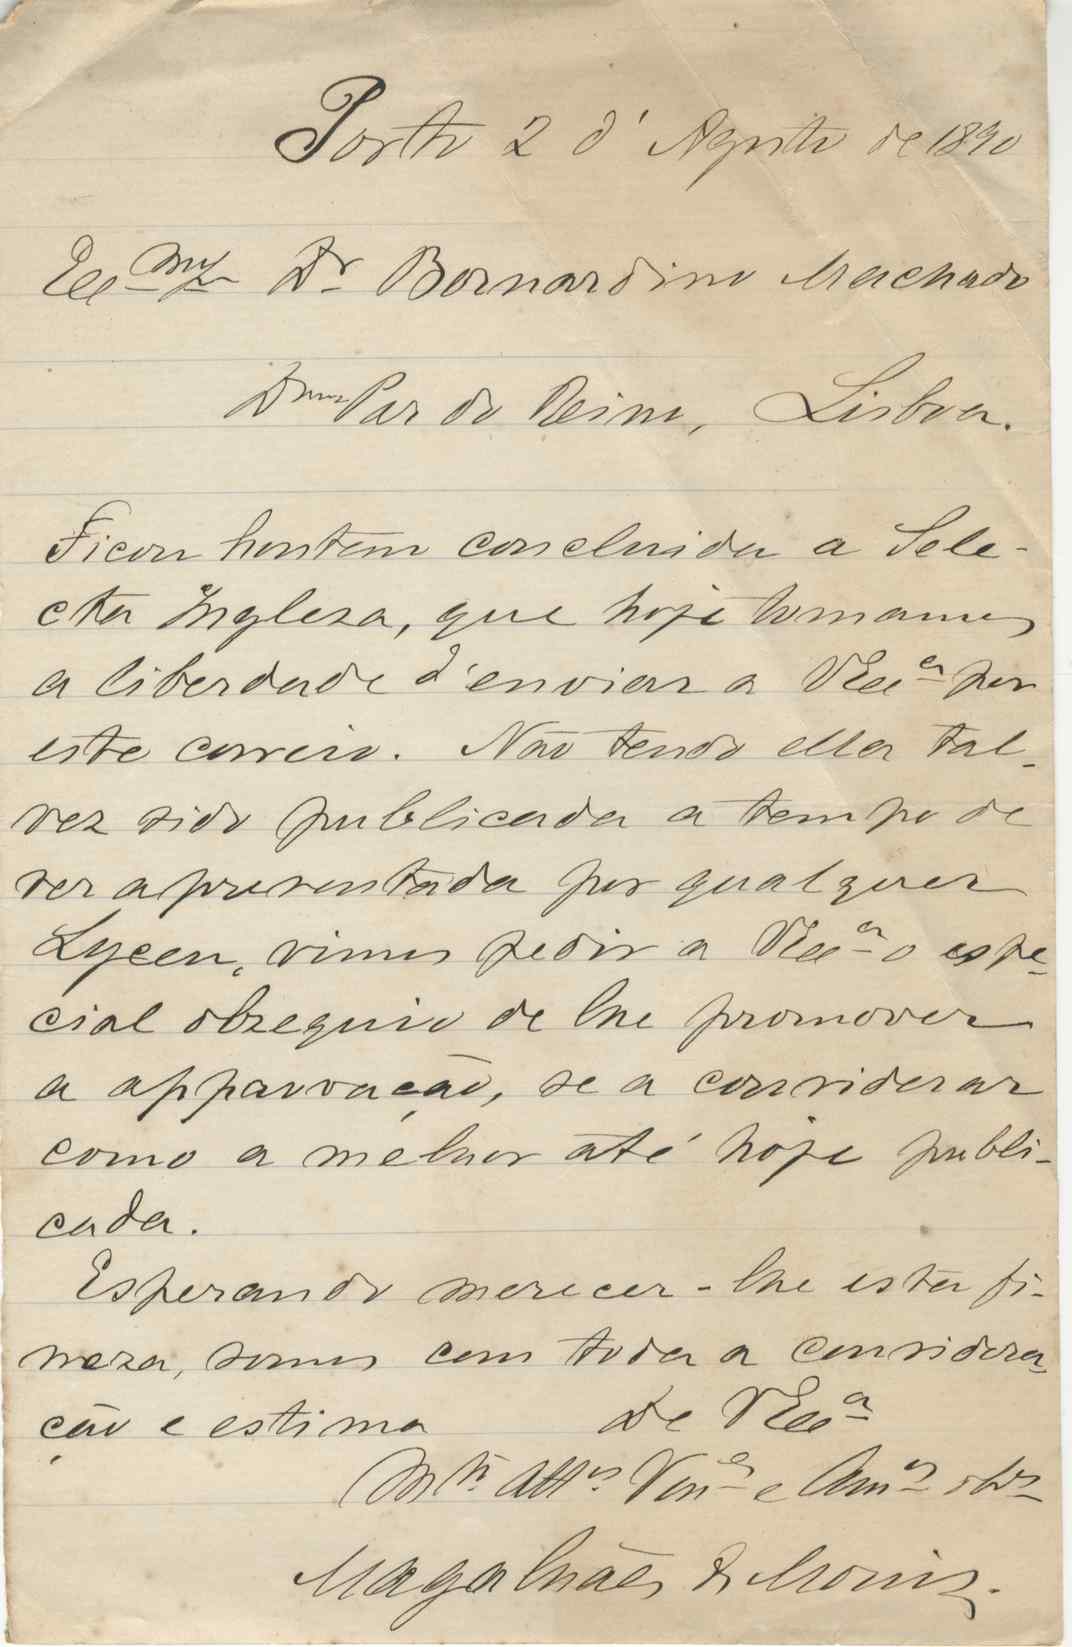 Porto 2 d' Agosto de 1890
Exmo Sr Dr Bernardino Machado
Dmo Par do Reino, Lisboa.
Ficou hontem concluida a Sele-
cta Ingleza, que hoje tomamos
a liberdade d'enviar a VExa por
este correio. Não tendo ella tal-
vez sido publicada a tempo de
ser apresentada por qualquer
Lyceu, vimos pedir a VExa o espe-
cial obzequio de lhe promover
a approvação, se a considerar
como a melhor até hoje publi-
cada.
Esperando merecer-lhe esta fi-
neza, somos com toda a considera-
ção e estima De VExa
Mto Attos Venes e Amos obos
Magalhães & Moniz.